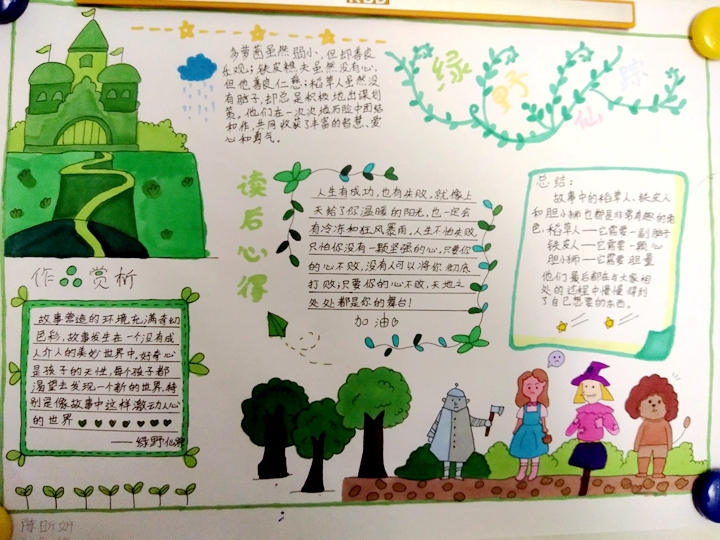 多萝茜虽然弱小,但却善良
乐观;铁皮樵夫虽然没有心,
但他善良仁慈;稻草人虽然没
有脑子,却总是积极地出谋划
策。他们在一次次地历险中团结
和作,共同收获了丰富的智慧、爱
心和勇气。
绿野仙踪
读后心得
人生有成功,也有失败,就像上
天给了你温暖的阳光,也一定会
有冷冻和狂风暴雨,人生不怕失败,
只怕你没有一颗坚强的心,只要你
的心不败,没有人可以将你彻底
打败;只要你的心不败,天地之
处处都是你的舞台!
加油
总结:
故事中的稻草人、铁皮人
和胆小狮也都是非常有趣的角
色,稻草人——它需要一副脑子
铁皮人——它需要一颗心
胆小狮——它需要胆量
他们最后都在与大家相
处的过程中慢慢得到
了自己想要的东西。
作品赏析
故事营造的环境充满奇幻
色彩,故事发生在一个没有成
人介入的美妙世界中,好奇心
是孩子的天性,每个孩子都
渴望去发现一个新的世界,特
别是像故事中这样激动人心
的世界
——绿野仙踪
陈昕妍